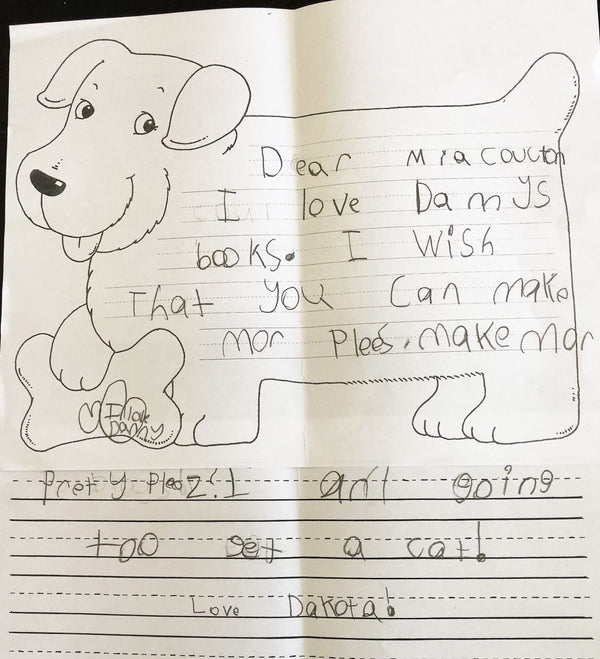 Dear Mia coucton
I love Damys
books. I wish
That you can make
mor plees. make mor
I love
Danny
Prety pleez! I am going
too get a cat!
Love Dakota!